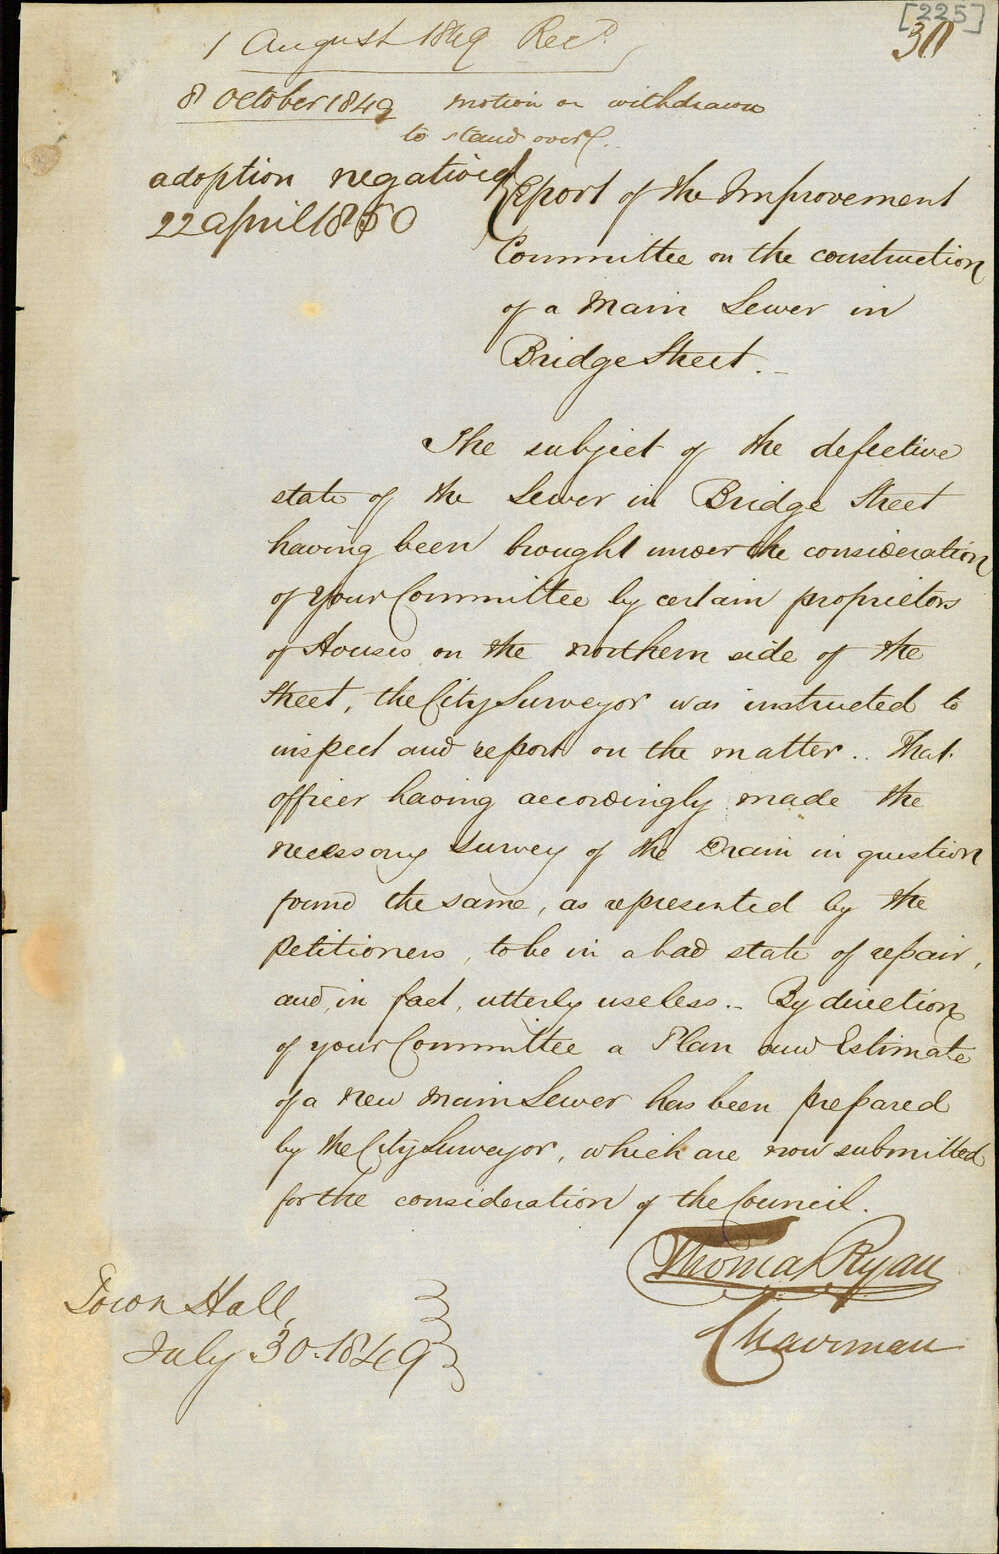 [225]
30
1 August 1849 Recd.
8 October 1849 motion on withdrawn
to stand over.
adoption negatived
22 april 1850
Report of the Improvement
Committee on the construction
of a Main Sewer in
Bridge Street.
The subject of the defective
state of the Sewer in Bridge Street
having been brought under the consideration
of your Committee by certain proprietors
of Houses on the northern side of the
Street, the City Surveyor was instructed to
inspect and report on the matter. That
officer having accordingly made the
necessary survey of the Drain in question
found the same, as represented by the
Petitioners, to be in a bad state of repair,
and, in fact, utterly useless. By direction
of your Committee a Plan and Estimate
of a new Main Sewer has been prepared
by the City Surveyor, which are now submitted
for the consideration of the Council.
Thomas Ryan
Chairman
Town Hall,
July 30. 1849